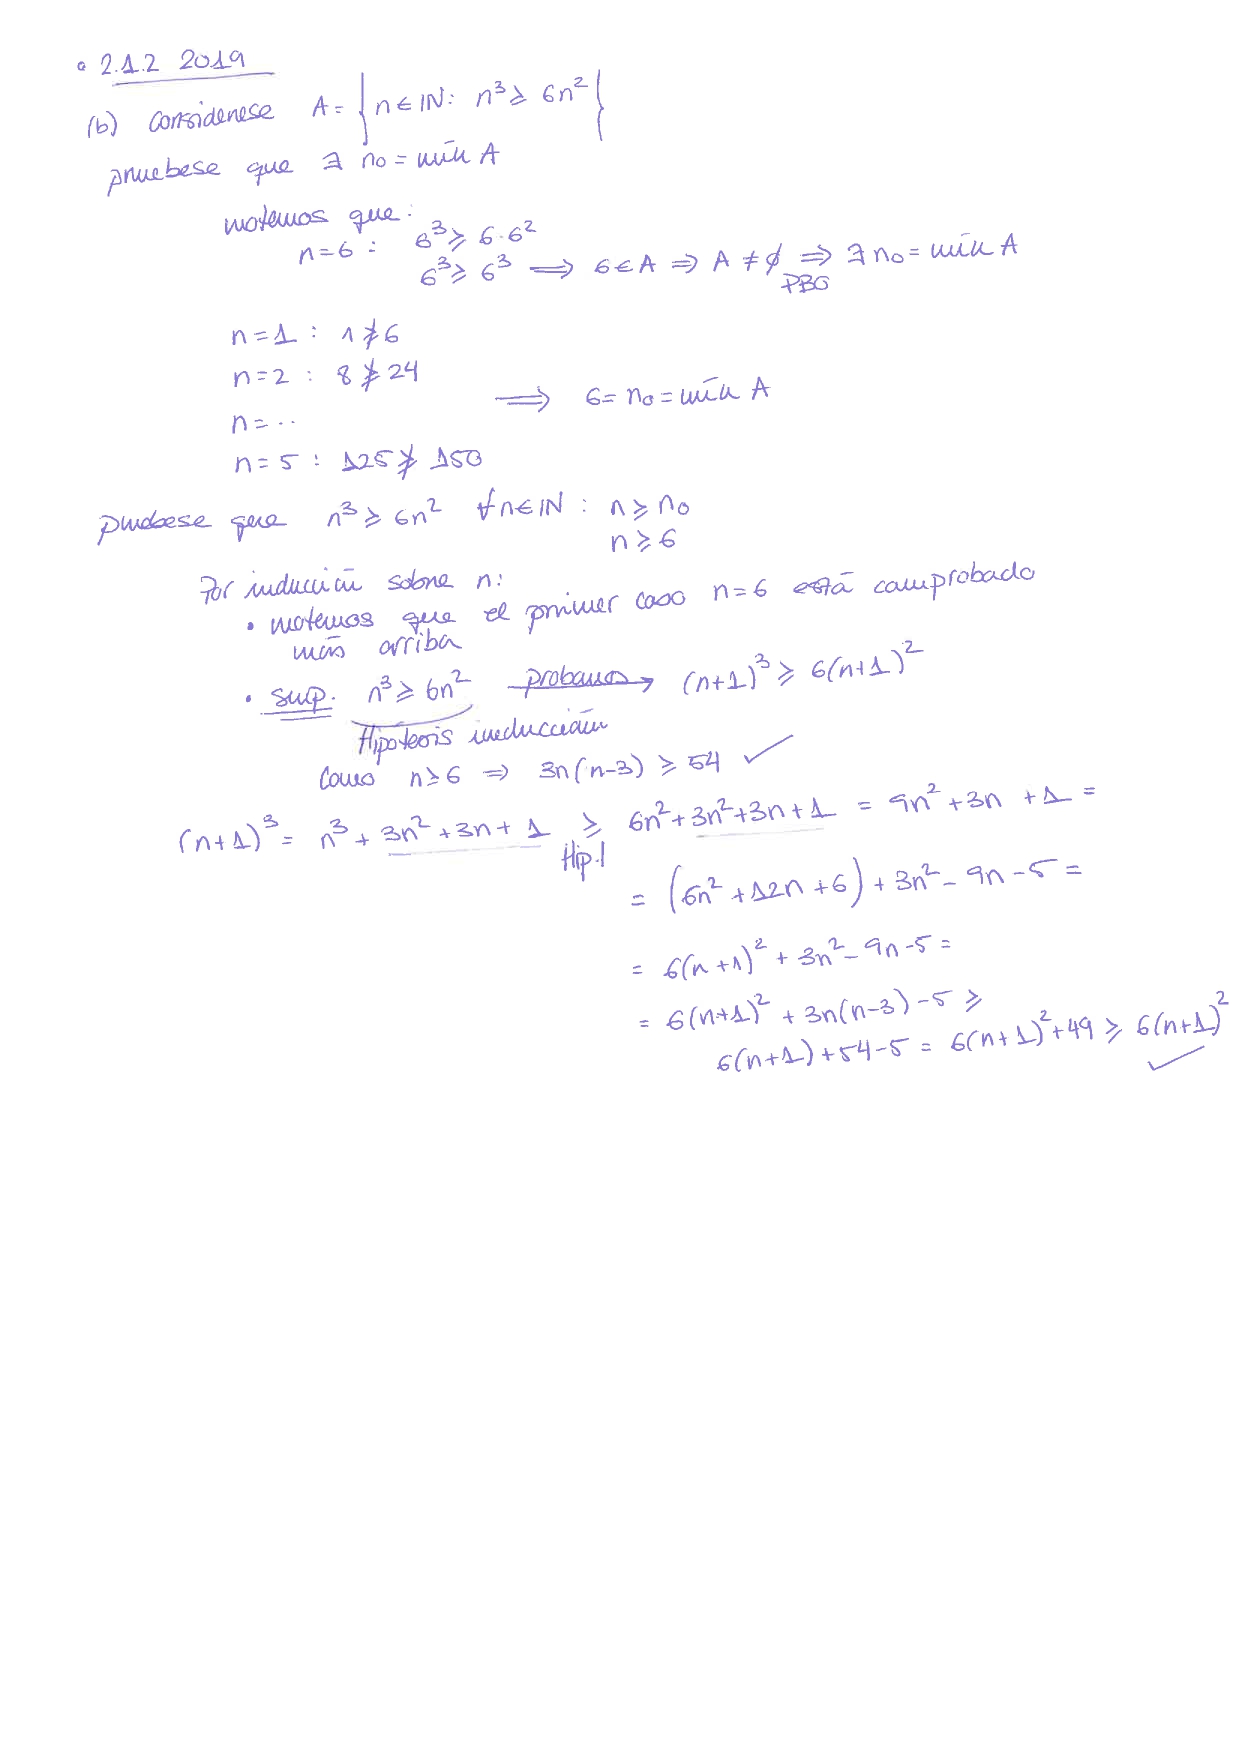 • 2.1.2 2019
(b) Considerese A = { n ∈ IN: n³ ≥ 6n² {
pruebese que ∃ n₀ = mín A
notemos que:
n = 6 : 6³ ≥ 6·6²
6³ ≥ 6³ ⟹ 6 ∈ A ⟹ A ≠ ∅ ⟹ ∃ n₀ = mín A
PBO
n = 1 : 1 ≱ 6
n = 2 : 8 ≱ 24
⟹ 6 = n₀ = mín A
n = ..
n = 5 : 125 ≱ 150
pruebese que n³ ≥ 6n² ∀n ∈ IN : n ≥ n₀
n ≥ 6
Por inducción sobre n:
• notemos que el primer caso n = 6 está comprobado
más arriba
• sup. n³ ≥ 6n² probamos → (n+1)³ ≥ 6(n+1)²
Hipótesis inducción
Como n ≥ 6 ⟹ 3n(n-3) ≥ 54 ✓
(n+1)³ = n³ + 3n² + 3n + 1 ≥ 6n² + 3n² + 3n + 1 = 9n² + 3n + 1 =
Hip.I
= (6n² + 12n + 6) + 3n² - 9n - 5 =
= 6(n+1)² + 3n² - 9n - 5 =
= 6(n+1)² + 3n(n-3) - 5 ≥
6(n+1) + 54 - 5 = 6(n+1)² + 49 ≥ 6(n+1)²
✓